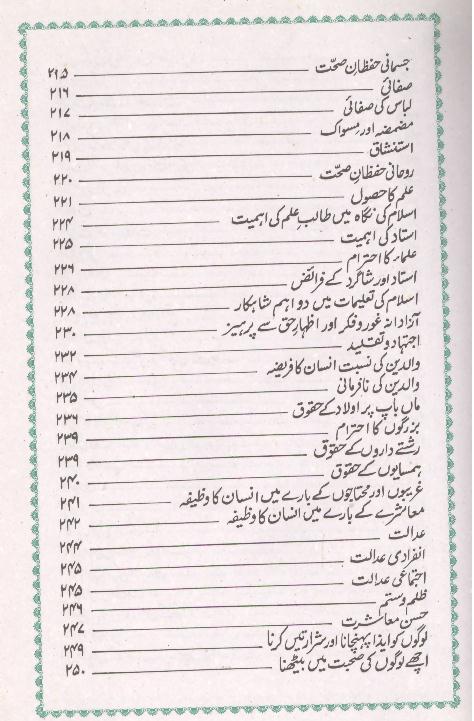 جسمانی حفظانِ صحّت ۲۱۵
صفائی ۲۱۶
لباس کی صفائی ۲۱۷
مضمضہ اور مسواک ۲۱۸
استنشاق ۲۱۹
روحانی حفظانِ صحّت ۲۲۰
علم کا حصول ۲۲۱
اسلام کی نگاہ میں طالبِ علم کی اہمیت ۲۲۴
استاد کی اہمیت ۲۲۵
علماء کا احترام ۲۲۶
استاد اور شاگرد کے فرائض ۲۲۸
اسلام کی تعلیمات میں دو اہم شاہکار ۲۲۸
آزادانہ غور و فکر اور اظہارِ حق سے پرہیز ۲۳۰
اجتہاد و تقلید ۲۳۲
والدین کی نسبت انسان کا فریضہ ۲۳۴
والدین کی نافرمانی ۲۳۵
ماں باپ پر اولاد کے حقوق ۲۳۶
بزرگوں کا احترام ۲۳۹
رشتے داروں کے حقوق ۲۳۹
ہمسایوں کے حقوق ۲۴۰
غریبوں اور محتاجوں کے بارے میں انسان کا وظیفہ ۲۴۱
معاشرے کے بارے میں انسان کا وظیفہ ۲۴۲
عدالت ۲۴۴
انفرادی عدالت ۲۴۵
اجتماعی عدالت ۲۴۵
ظلم و ستم ۲۴۶
حسن معاشرت ۲۴۷
لوگوں کو ایذا پہنچانا اور شرارتیں کرنا ۲۴۹
اچھے لوگوں کی صحبت میں بیٹھنا ۲۵۰